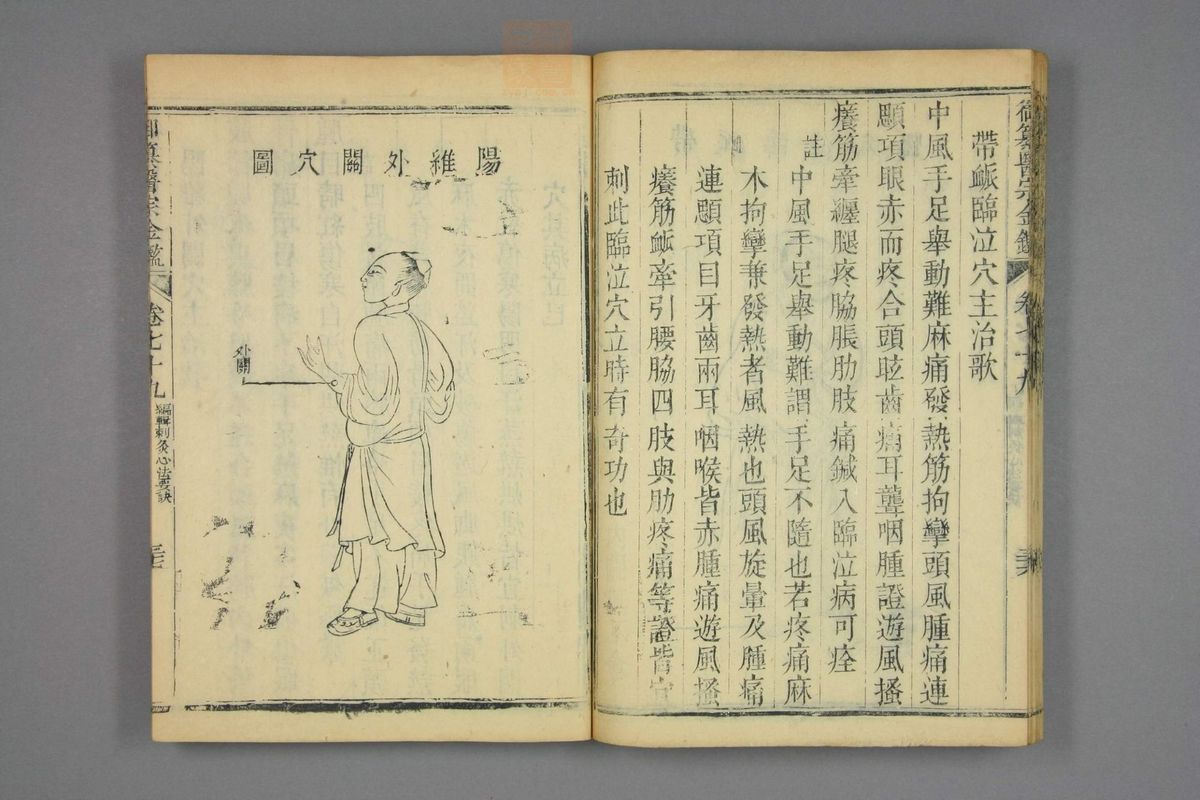 御纂醫宗金鑑
卷七十九
帶䘑臨泣穴主治歌
中風手足舉動難麻痛發熱筋拘攣頭風腫痛連
顋項眼赤而疼合頭眩齒痛耳聾咽腫證遊風搔
癢筋牽纏腿疼脇脹肋肢痛鍼入臨泣病可痊
註
中風手足舉動難謂手足不隨也若疼痛麻
木拘攣兼發熱者風熱也頭風旋暈及腫痛
連顋項目牙齒兩耳咽喉皆赤腫痛遊風搔
癢筋䘑牽引腰脇四肢與肋疼痛等證皆宜
刺此臨泣穴立時有奇功也
陽維外關穴圖
外關
御纂醫宗金鑑
卷七十九
編輯刺灸心法要訣